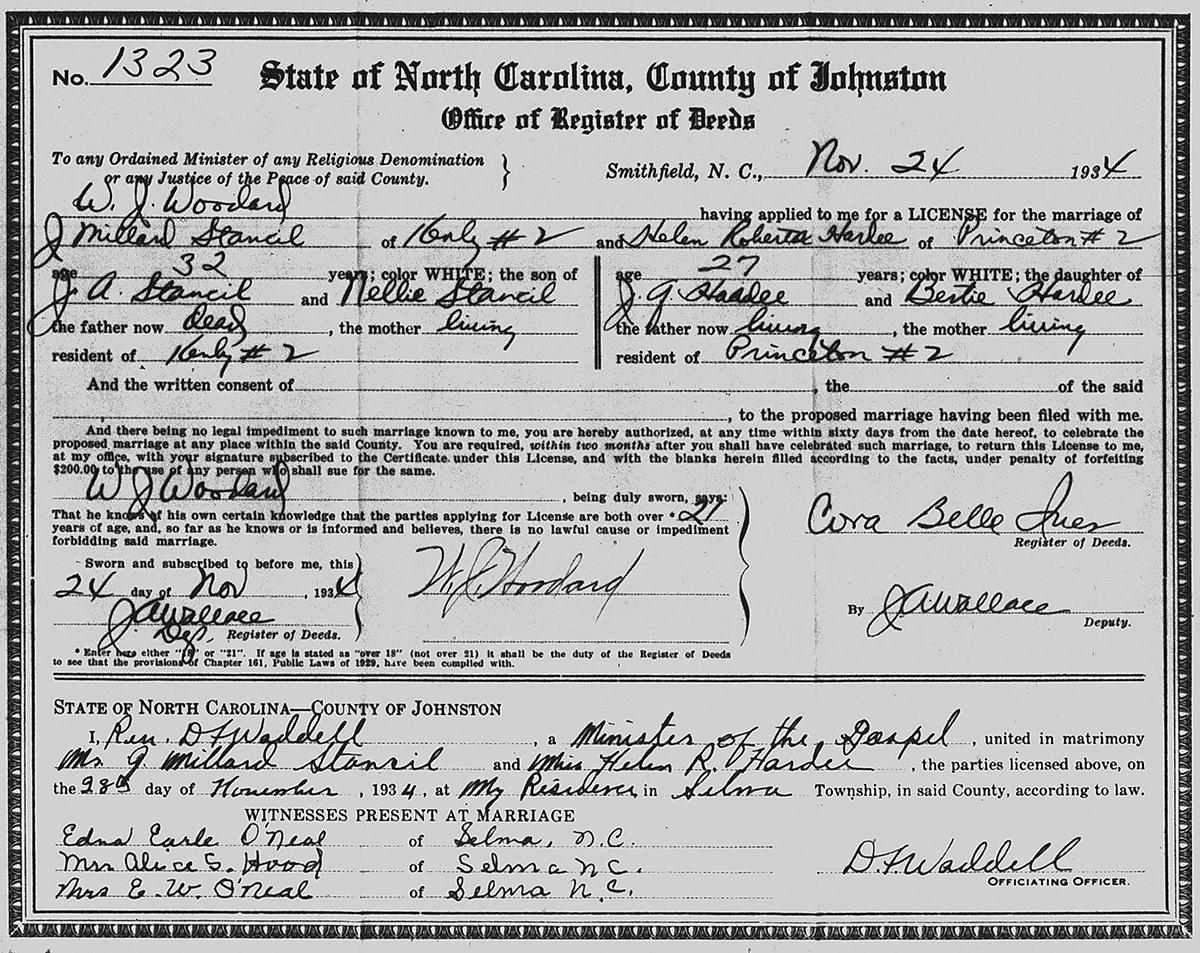 No. 1323 State of North Carolina, County of Johnston
Office of Register of Deeds
To any Ordained Minister of any Religious Denomination
or any Justice of the Peace of said County.
Smithfield, N. C., Nov. 24 1934
W. J. Woodard having applied to me for a LICENSE for the marriage of
J Millard Stancil of Kenly # 2 and Helen Roberta Hardee of Princeton # 2
age 32 years; color WHITE; the son of
J. A. Stancil and Nellie Stancil
the father now dead, the mother living
resident of Kenly # 2
age 27 years; color WHITE; the daughter of
J. G Hardee and Bertie Hardee
the father now living, the mother living
resident of Princeton # 2
And the written consent of , the of the said
, to the proposed marriage having been filed with me.
And there being no legal impediment to such marriage known to me, you are hereby authorized, at any time within sixty days from the date hereof, to celebrate the
proposed marriage at any place within the said County. You are required, within two months after you shall have celebrated such marriage, to return this License to me,
at my office, with your signature subscribed to the Certificate under this License, and with the blanks herein filled according to the facts, under penalty of forfeiting
$200.00 to the use of any person who shall sue for the same.
W J Woodard, being duly sworn, says:
That he knows of his own certain knowledge that the parties applying for License are both over * 21
years of age, and, so far as he knows or is informed and believes, there is no lawful cause or impediment
forbidding said marriage.
Sworn and subscribed to before me, this
24 day of Nov, 1934
J A Wallace
Dep. Register of Deeds.
W. J. Woodard
Cora Belle Ives
Register of Deeds.
By J A Wallace
Deputy.
* Enter here either "18" or "21". If age is stated as "over 18" (not over 21) it shall be the duty of the Register of Deeds
to see that the provisions of Chapter 161, Public Laws of 1929, have been complied with.
STATE OF NORTH CAROLINA—COUNTY OF JOHNSTON
I, Rev. D F Waddell, a Minister of the Gospel, united in matrimony
Mr. J Millard Stancil and Miss Helen R. Hardee, the parties licensed above, on
the 28th day of November, 1934, at My Residence in Selma Township, in said County, according to law.
WITNESSES PRESENT AT MARRIAGE
Edna Earle O'Neal of Selma, N.C.
Mrs Alice S. Hood of Selma N C.
Mrs E. W. O'Neal of Selma N. C.
D. F. Waddell
OFFICIATING OFFICER.